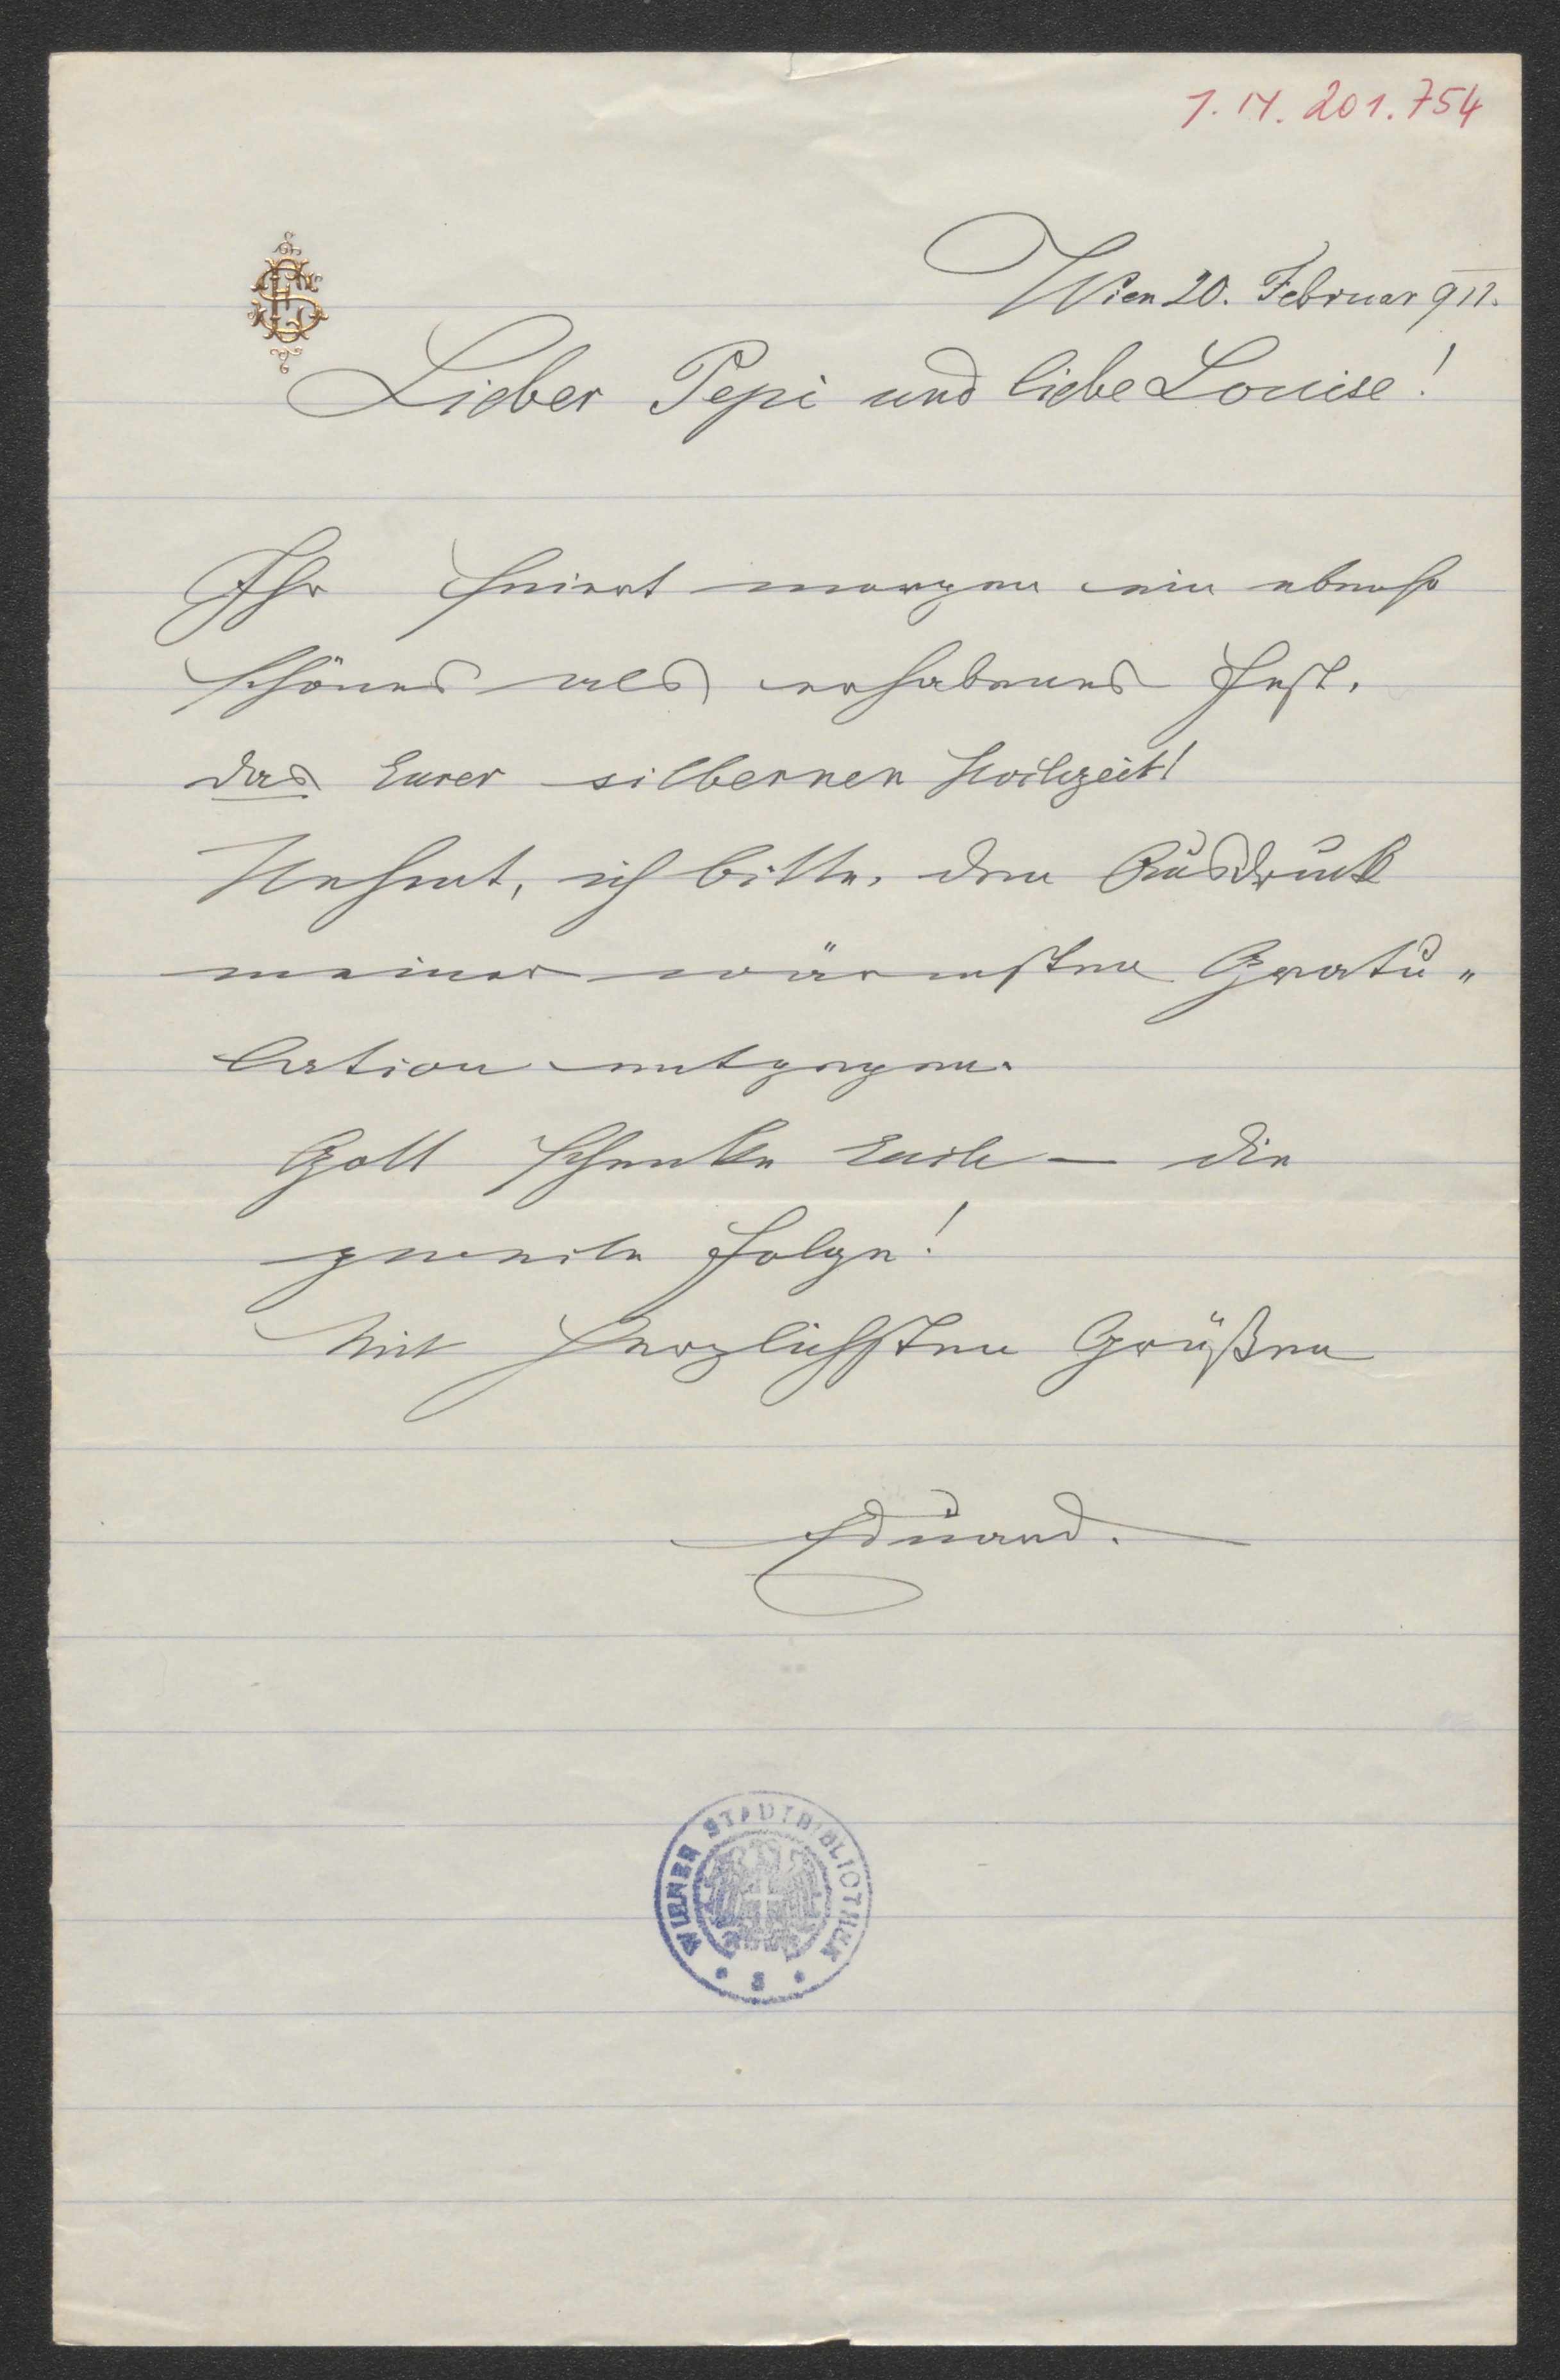 I. N. 201.754
Wien 20. Februar 911.
Lieber Pepi und liebe Louise!
Ihr feiert morgen ein ebenso
schönes als erhabenes Fest,
das Eurer silbernen Hochzeit!
Nehmt, ich bitte, den Ausdruck
meiner wärmsten Gratu„
lation entgegen.
Gott schenke Euch – die
zweite Folge!
Mit herzlichsten Grüßen
Eduard.
WIENER STADTBIBLIOTHEK